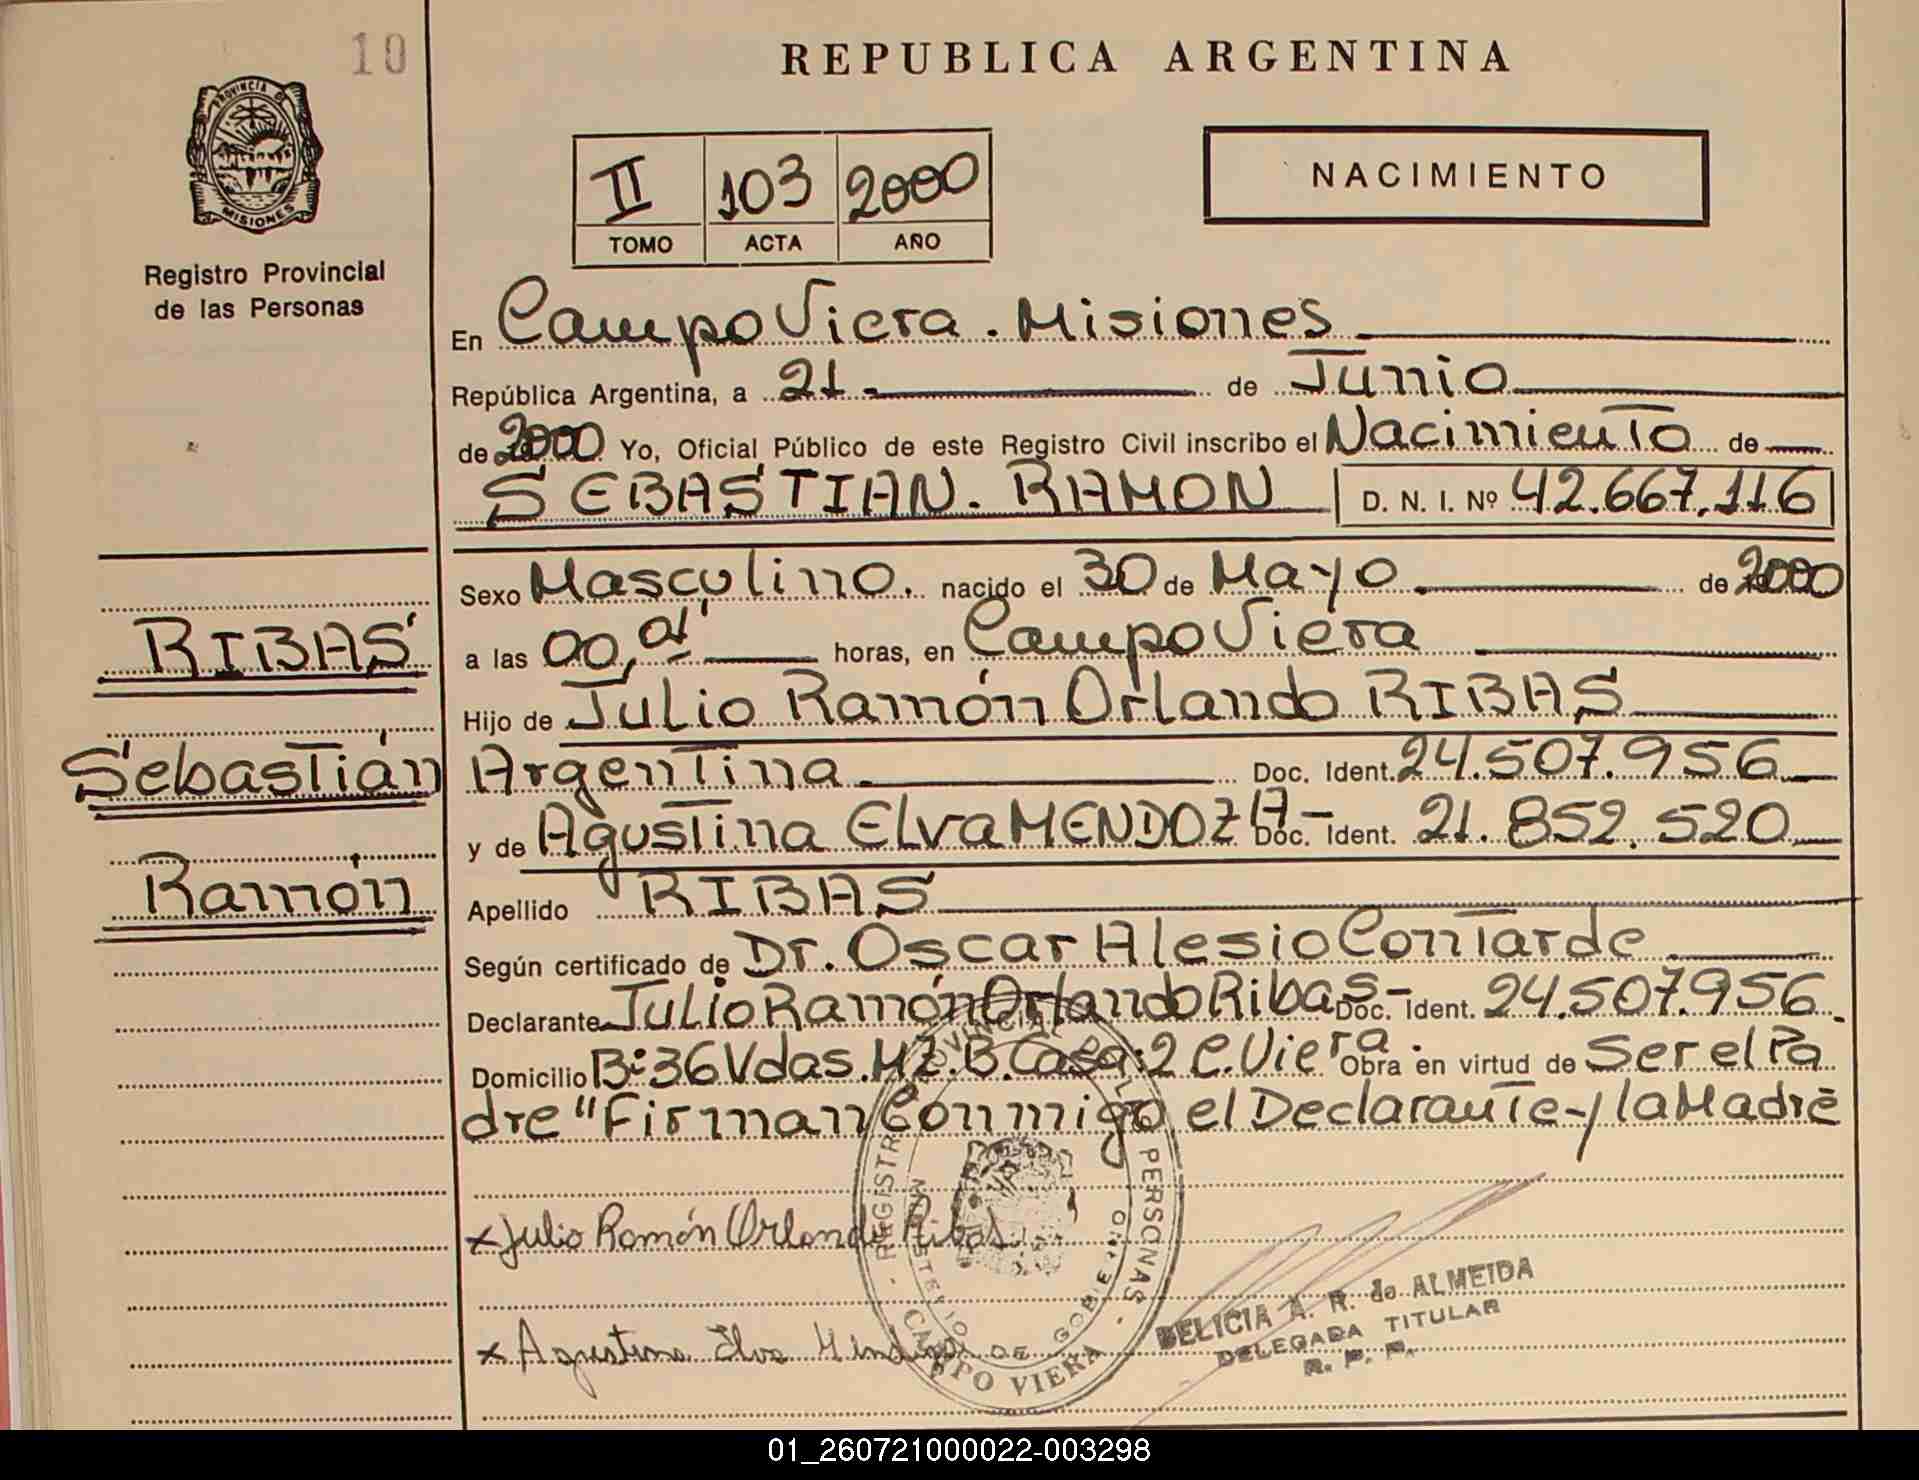 10
REPUBLICA ARGENTINA
PROVINCIA DE
MISIONES
Registro Provincial
de las Personas
II 103 2000
TOMO ACTA AÑO
NACIMIENTO
En Campo Viera. Misiones
República Argentina, a 21 de Junio
de 2000 Yo, Oficial Público de este Registro Civil inscribo el Nacimiento de
SEBASTIAN. RAMON D. N. I. Nº 42.667.116
RIBAS
Sebastián
Ramón
Sexo Masculino. nacido el 30 de Mayo de 2000
a las 00,01 horas, en Campo Viera
Hijo de Julio Ramón Orlando RIBAS
Argentina Doc. Ident. 24.507.956
y de Agustina Elva MENDOZA - Doc. Ident. 21.852.520
Apellido RIBAS
Según certificado de Dr. Oscar Alesio Contarde
Declarante Julio Ramón Orlando Ribas - Doc. Ident. 24.507.956
Domicilio B:36 Vdas. MZ. B. Casa: 2 C. Viera. Obra en virtud de Ser el Pa
dre "Firman Conmigo el Declarante y la Madre
x Julio Ramón Orlando Ribas
x Agustina Elva
REGISTRO PROVINCIAL DE LAS PERSONAS
MINISTERIO DE GOBIERNO
CAMPO VIERA
DELICIA A. R. de ALMEIDA
DELEGADA TITULAR
R. P. P.
01_260721000022-003298